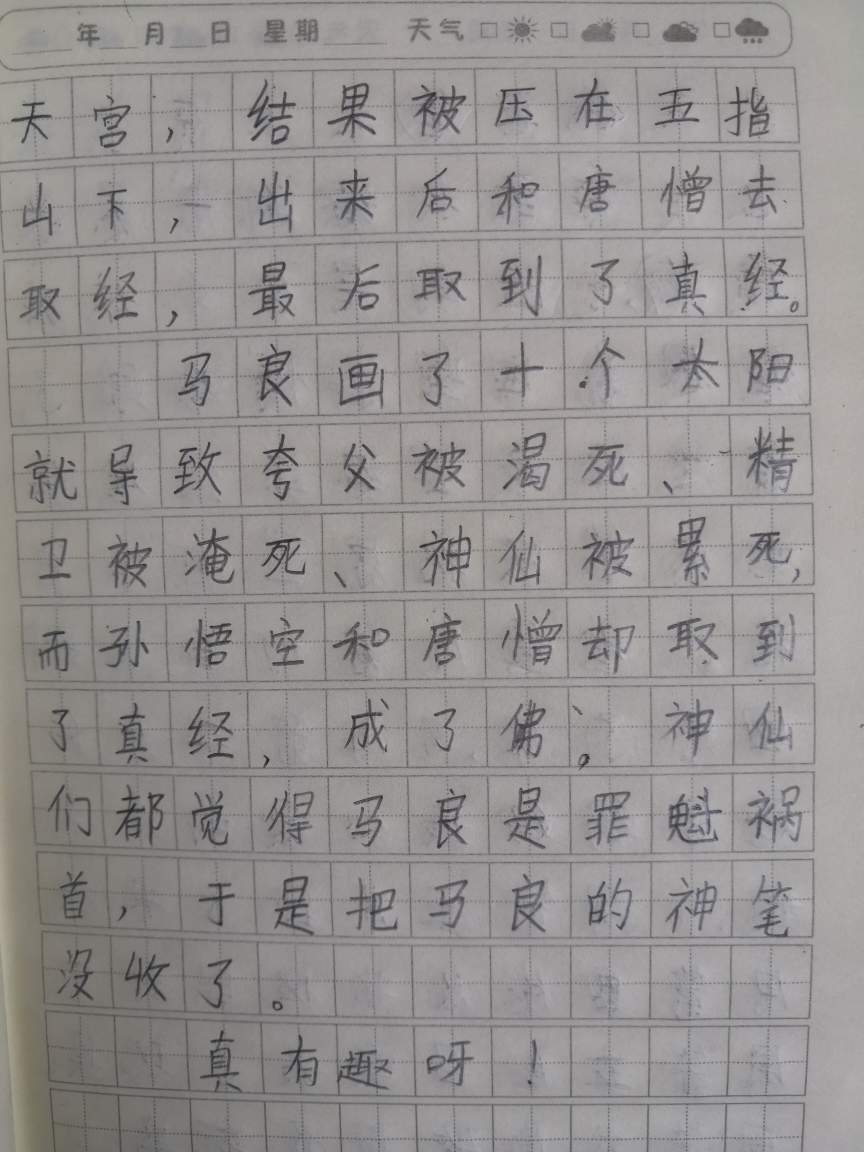 年 月 日 星期 天气
天宫，结果被压在五指
山下，出来后和唐憎去
取经，最后取到了真经。
马良画了十个太阳
就导致夸父被渴死、精
卫被淹死、神仙被累死，
而孙悟空和唐憎却取到
了真经，成了佛。神仙
们都觉得马良是罪魁祸
首，于是把马良的神笔
没收了。
真有趣呀！